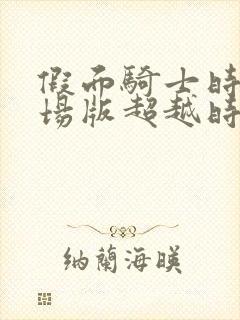 假面騎士時
場版超越時
納蘭海暎